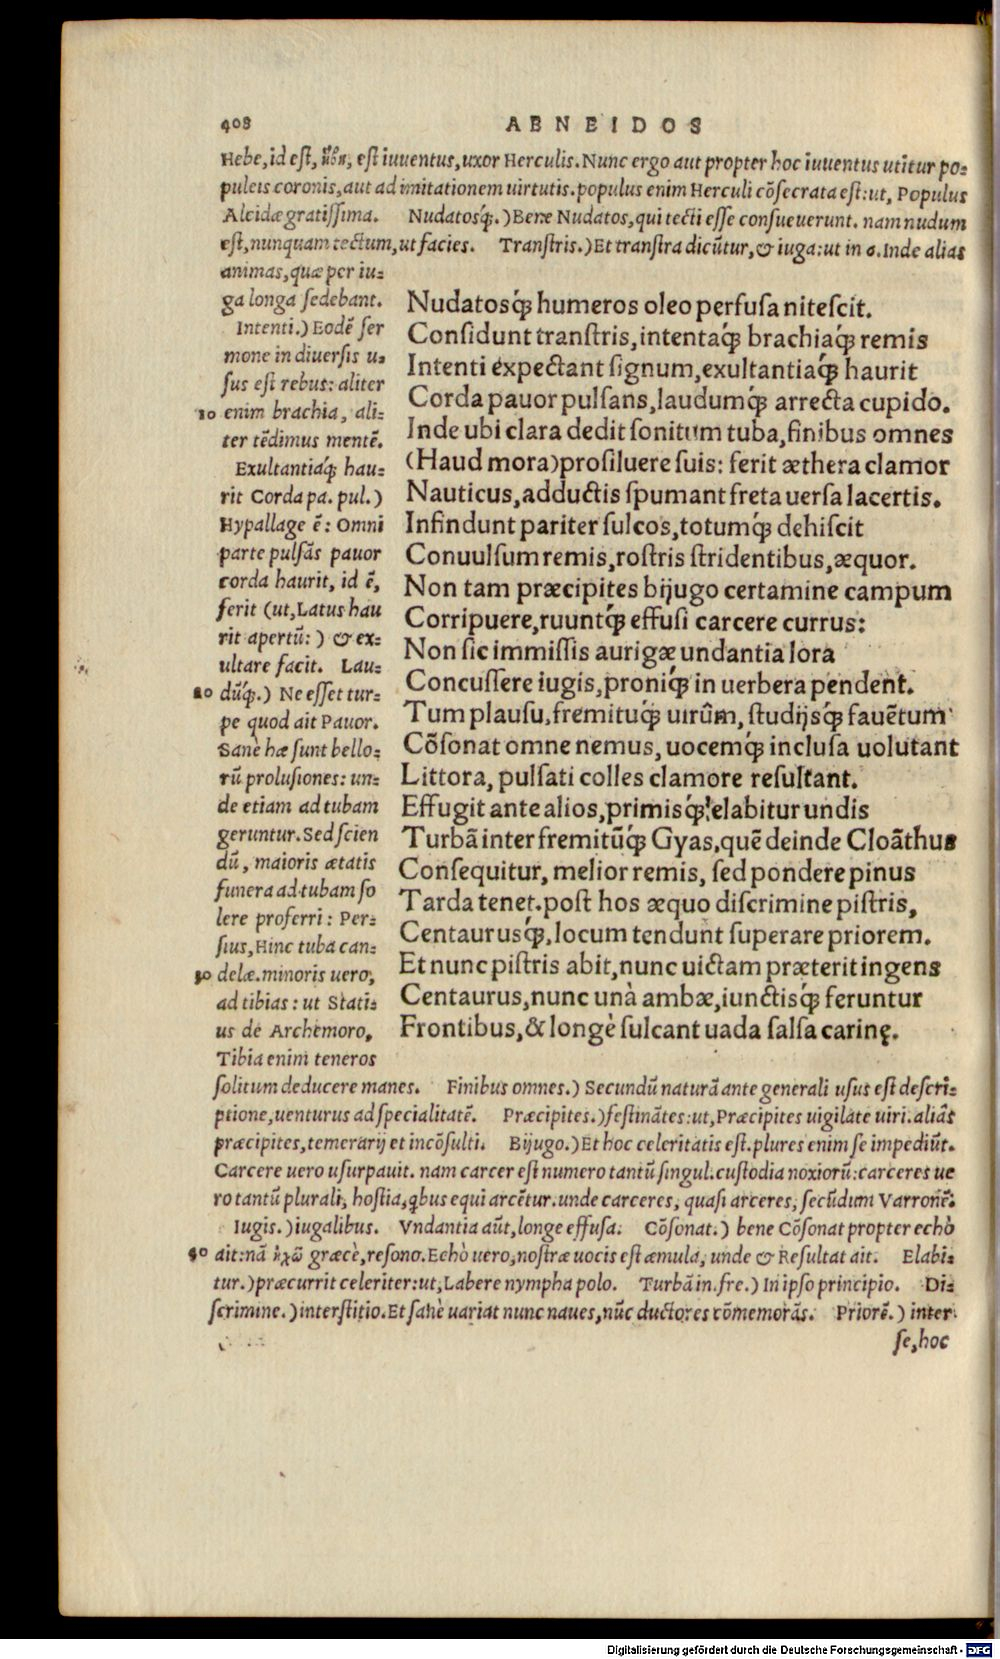 408 AENEIDOS
Hebe, id est, ἥβη, est iuuentus, uxor Herculis. Nunc ergo aut propter hoc iuuentus utitur po-
puleis coronis, aut ad imitationem uirtutis. populus enim Herculi cõsecrata est: ut, Populus
Alcidæ gratissima. Nudatosq́;.) Bene Nudatos, qui tecti esse consueuerunt. nam nudum
est, nunquam tectum, ut facies. Transtris.) Et transtra dicũtur, & iuga: ut in 6. Inde alias
animas, quæ per iu-
ga longa sedebant.
Intenti.) Eodẽ ser
mone in diuersis u-
sus est rebus: aliter
10 enim brachia, ali-
ter tẽdimus mentẽ.
Exultantiaq́; hau-
rit Corda pa. pul.)
Hypallage ẽ: Omni
parte pulsãs pauor
corda haurit, id ẽ,
ferit (ut, Latus hau
rit apertũ: ) & ex-
ultare facit. Lau-
20 dũq́;.) Ne esset tur-
pe quod ait Pauor.
Sanè hæ sunt bello-
rũ prolusiones: un-
de etiam ad tubam
geruntur. Sed scien
dũ, maioris ætatis
funera ad tubam so
lere proferri: Per-
sius, Hinc tuba can-
30 delæ. minoris uero,
ad tibias: ut Stati-
us de Archemoro,
Tibia enim teneros
Nudatosq́; humeros oleo perfusa nitescit.
Considunt transtris, intentaq́; brachiaq́; remis
Intenti expectant signum, exultantiaq́; haurit
Corda pauor pulsans, laudumq́; arrecta cupido.
Inde ubi clara dedit sonitum tuba, finibus omnes
(Haud mora) prosiluere suis: ferit æthera clamor
Nauticus, adductis spumant freta uersa lacertis.
Infindunt pariter sulcos, totumq́; dehiscit
Conuulsum remis, rostris stridentibus, æquor.
Non tam præcipites bijugo certamine campum
Corripuere, ruuntq́; effusi carcere currus:
Non sic immissis aurigæ undantia lora
Concussere iugis, proniq́; in uerbera pendent.
Tum plausu, fremituq́; uirûm, studijsq́; fauẽtum
Cõsonat omne nemus, uocemq́; inclusa uolutant
Littora, pulsati colles clamore resultant.
Effugit ante alios, primisq́; elabitur undis
Turbã inter fremitũq́; Gyas, quẽ deinde Cloãthus
Consequitur, melior remis, sed pondere pinus
Tarda tenet. post hos æquo discrimine pistris,
Centaurusq́;, locum tendunt superare priorem.
Et nunc pistris abit, nunc uictam præterit ingens
Centaurus, nunc unà ambæ, iunctisq́; feruntur
Frontibus, & longè sulcant uada salsa carinę.
solitum deducere manes. Finibus omnes.) Secundũ naturã ante generali usus est descri-
ptione, uenturus ad specialitatẽ. Præcipites.) festinãtes: ut, Præcipites uigilate uiri. aliãs
præcipites, temerarij et incõsulti. Bijugo.) Et hoc celeritatis est. plures enim se impediũt.
Carcere uero usurpauit. nam carcer est numero tantũ singul. custodia noxiorũ: carceres ue
ro tantũ plurali, hostia, ꝗbus equi arcẽtur. unde carceres, quasi arceres, secũdum Varronẽ.
Iugis.) iugalibus. Vndantia aũt, longe effusa. Cõsonat.) bene Cõsonat propter echò
40 ait: nã ἠχῶ græcè, resono. Echò uero, nostræ uocis est æmula, unde & Resultat ait. Elabi-
tur.) præcurrit celeriter: ut, Labere nympha polo. Turbã in. fre.) In ipso principio. Di-
scrimine.) interstitio. Et sanè uariat nunc naues, nũc ductores cõmemorãs. Priorẽ.) inter
se, hoc
Digitalisierung gefördert durch die Deutsche Forschungsgemeinschaft - DFG